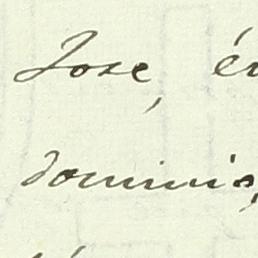 Jose, é
dominio,